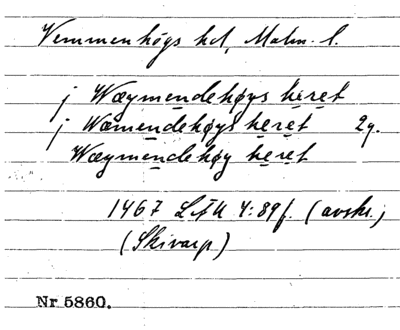 Vemmenhögs hd, Malm. l.
j Wæymendehøys heret
j Wæmendehøys heret 2g.
Wæymendehøy heret
1467 LÄU 4:89f. (avskr.)
(Skivarp)
Nr 5860.